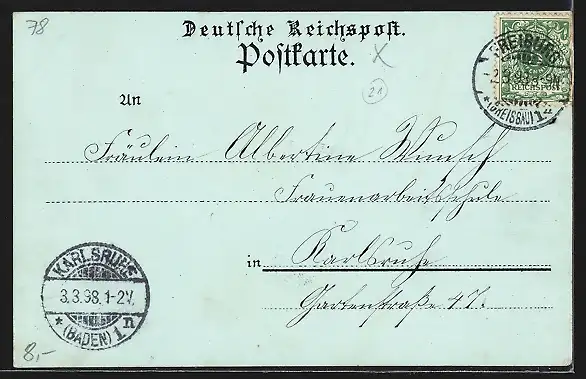 78
Deutsche Reichspost.
Postkarte.
X
21
FREIBURG
2.3.98.
(BREISGAU)
REICHSPOST
An
Fräulein Albertine Wunsch
Frauenarbeitsschule
in Karlsruhe
Gartenstraße 47.
KARLSRUHE
3.3.98.1-2V.
* (BADEN) 1n
8,-